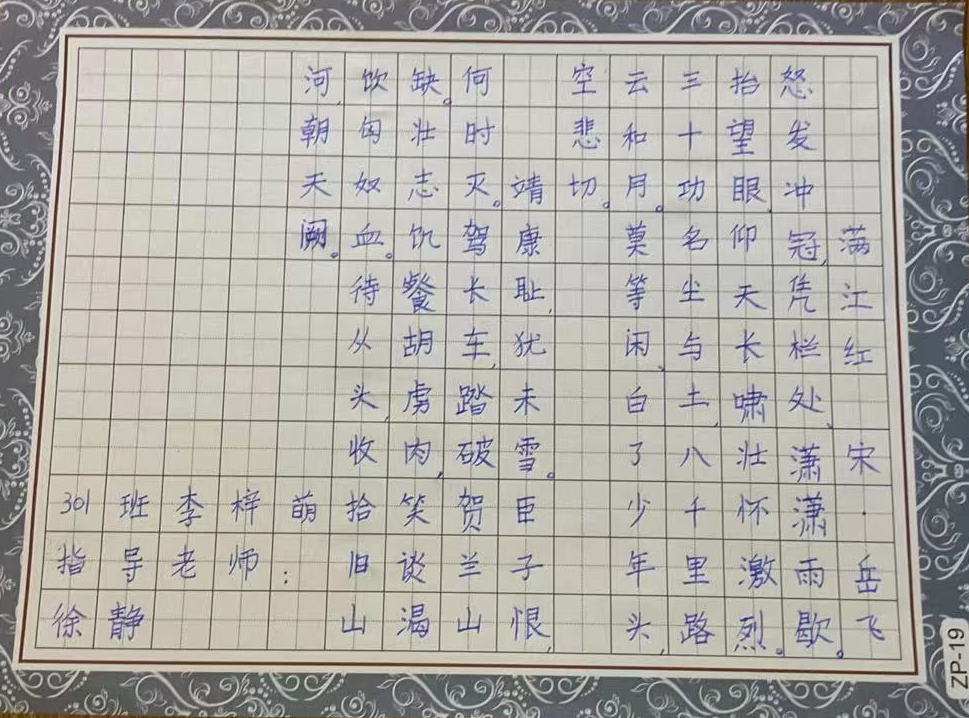 满江红 宋·岳飞
怒发冲冠,凭栏处、潇潇雨歇。
抬望眼,仰天长啸,壮怀激烈。
三十功名尘与土,八千里路
云和月。莫等闲、白了少年头,
空悲切。
靖康耻,犹未雪。臣子恨,
何时灭。驾长车,踏破贺兰山
缺。壮志饥餐胡虏肉,笑谈渴
饮匈奴血。待从头,收拾旧山
河,朝天阙。
301班李梓萌
指导老师:
徐静
ZP-19